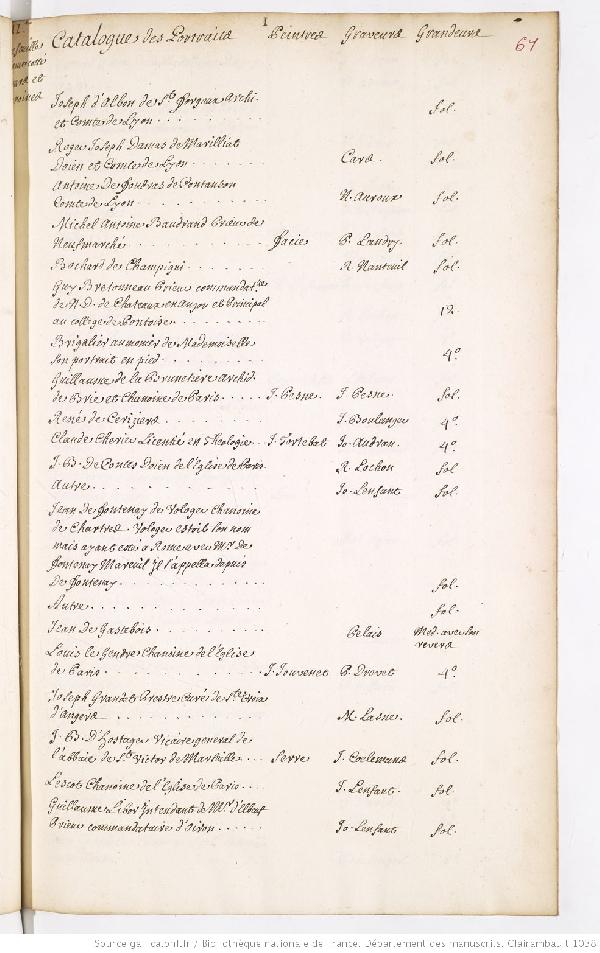 1
Catalogue des Portraits Peintres Graveurs Grandeurs 67
Joseph d'Albon de St. Forgeux Archi.
et Comte de Lyon . . . . . . . . fol.
Roger Joseph Damas de Marilliat
Doien et Comte de Lyon . . . . . . . Cars. fol.
Antoine De foudras de Contanson
Comte de Lyon . . . . . . . . N. Auroux fol.
Michel Antoine Baudrand Prieur de
Neufmarché . . . . . . . . facie P. Landry. fol.
Bochard de Champigni . . . . . . R. Nanteuil fol.
Guy Bretonneau Prieur commandat.re
de N. D. de Chateaux en anjou et Principal
au college de Pontoise . . . . . . . . 12.
Brigalier aumonier de Mademoiselle
son portrait en pied . . . . . . . . 4.o
Guillaume de la Brunetiere archid.
de Brie et Chanoine de Paris . . . . J. Pesne J. Pesne. fol.
René de Ceriziers . . . . . . . . J. Boulanger 4.o
Claude Cherier Licentié en Theologie . . J. Tortebat Jo. Audran. 4.o
J. B. De Contes Doien de l'Eglise de Paris R. Lochon fol.
Autre . . . . . . . . Jo. Lenfant fol.
Jean de fontenay de Vologer Chanoine
de Chartres. Vologer estoit son nom
mais ayant esté a Rome avec Mr. de
fontenay Mareuil Il s'appella depuis
De fontenay . . . . . . . . fol.
Autre . . . . . . . . fol.
Jean de Gastebois . . . . . . . . Belais Med. avec son
revers
Louis le Gendre Chanoine de l'Eglise
de Paris . . . . . . . . J. Jouvenet P. Drevet 4.o
Joseph Grandet Prestre Curé de Ste. Croix
d'Angers . . . . . . . . M. Lasne. fol.
J. B. D'Hostager Vicaire general de
l'abbaie de St. Victor de Marseille . . . Serre J. Coelemans fol.
Lescot Chanoine de l'Eglise de Paris . . . J. Lenfant. fol.
Guillaume Libor Intendant de Mr. d'Elbeuf
Prieur commandataire d'Oison . . . . . . Jo. Lenfant fol.
Source gallica.bnf.fr / Bibliothèque nationale de France. Département des manuscrits. Clairambault 1038